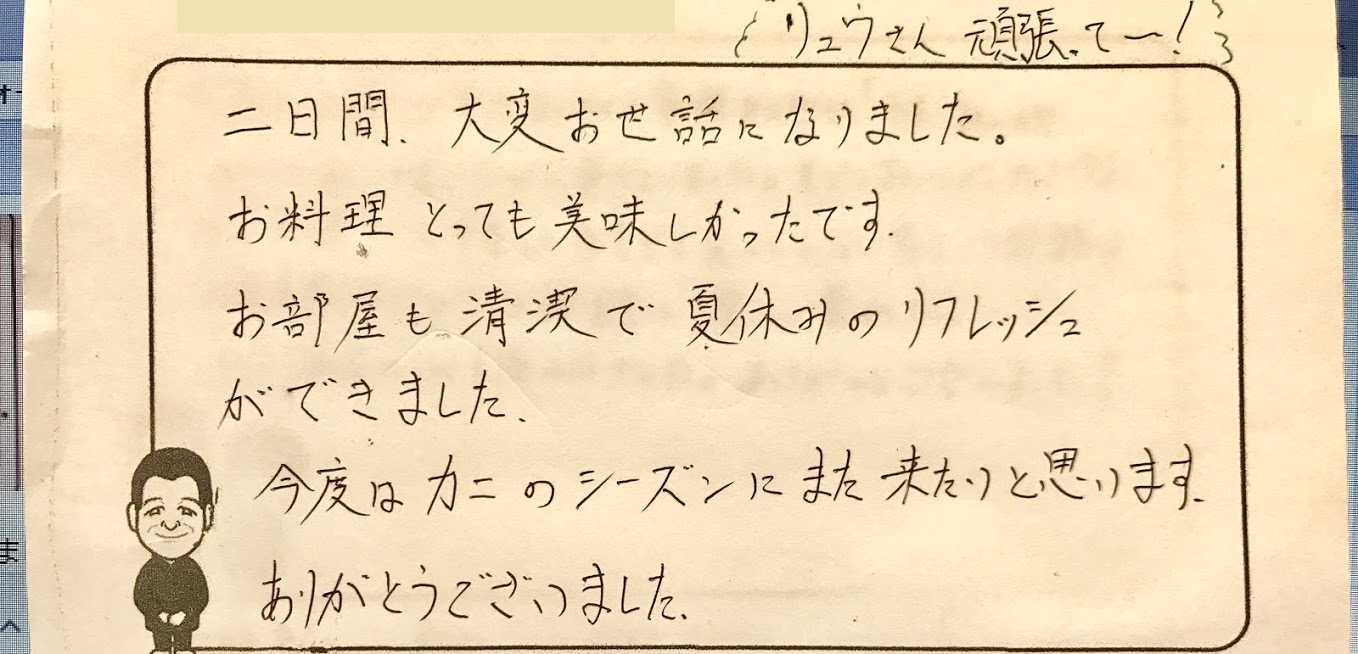 リュウさん 頑張ってー!
二日間、大変お世話になりました。
お料理 とっても美味しかったです。
お部屋も清潔で夏休みのリフレッシュ
ができました。
今度はカニのシーズンにまた来たいと思います。
ありがとうございました。